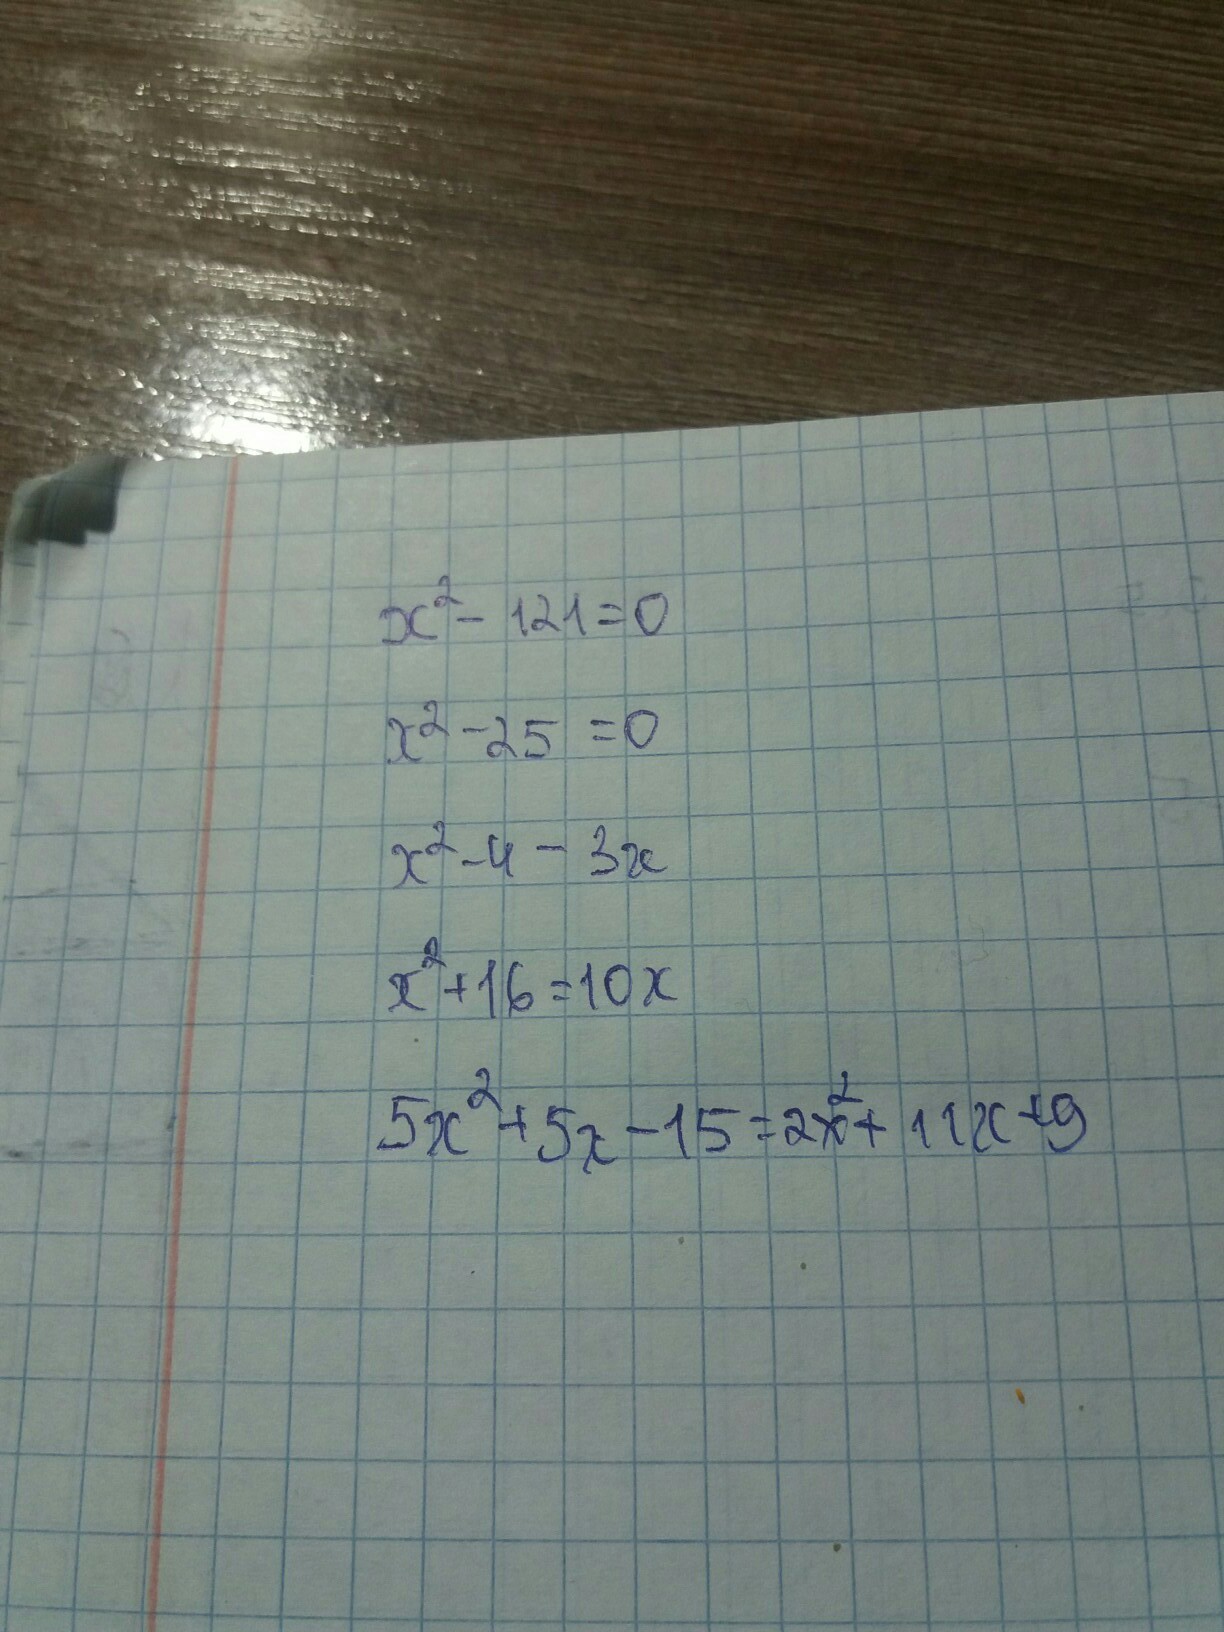 x² - 121 = 0
x² - 25 = 0
x² - 4 - 3x
x² + 16 = 10x
5x² + 5x - 15 = 2x² + 11x + 9